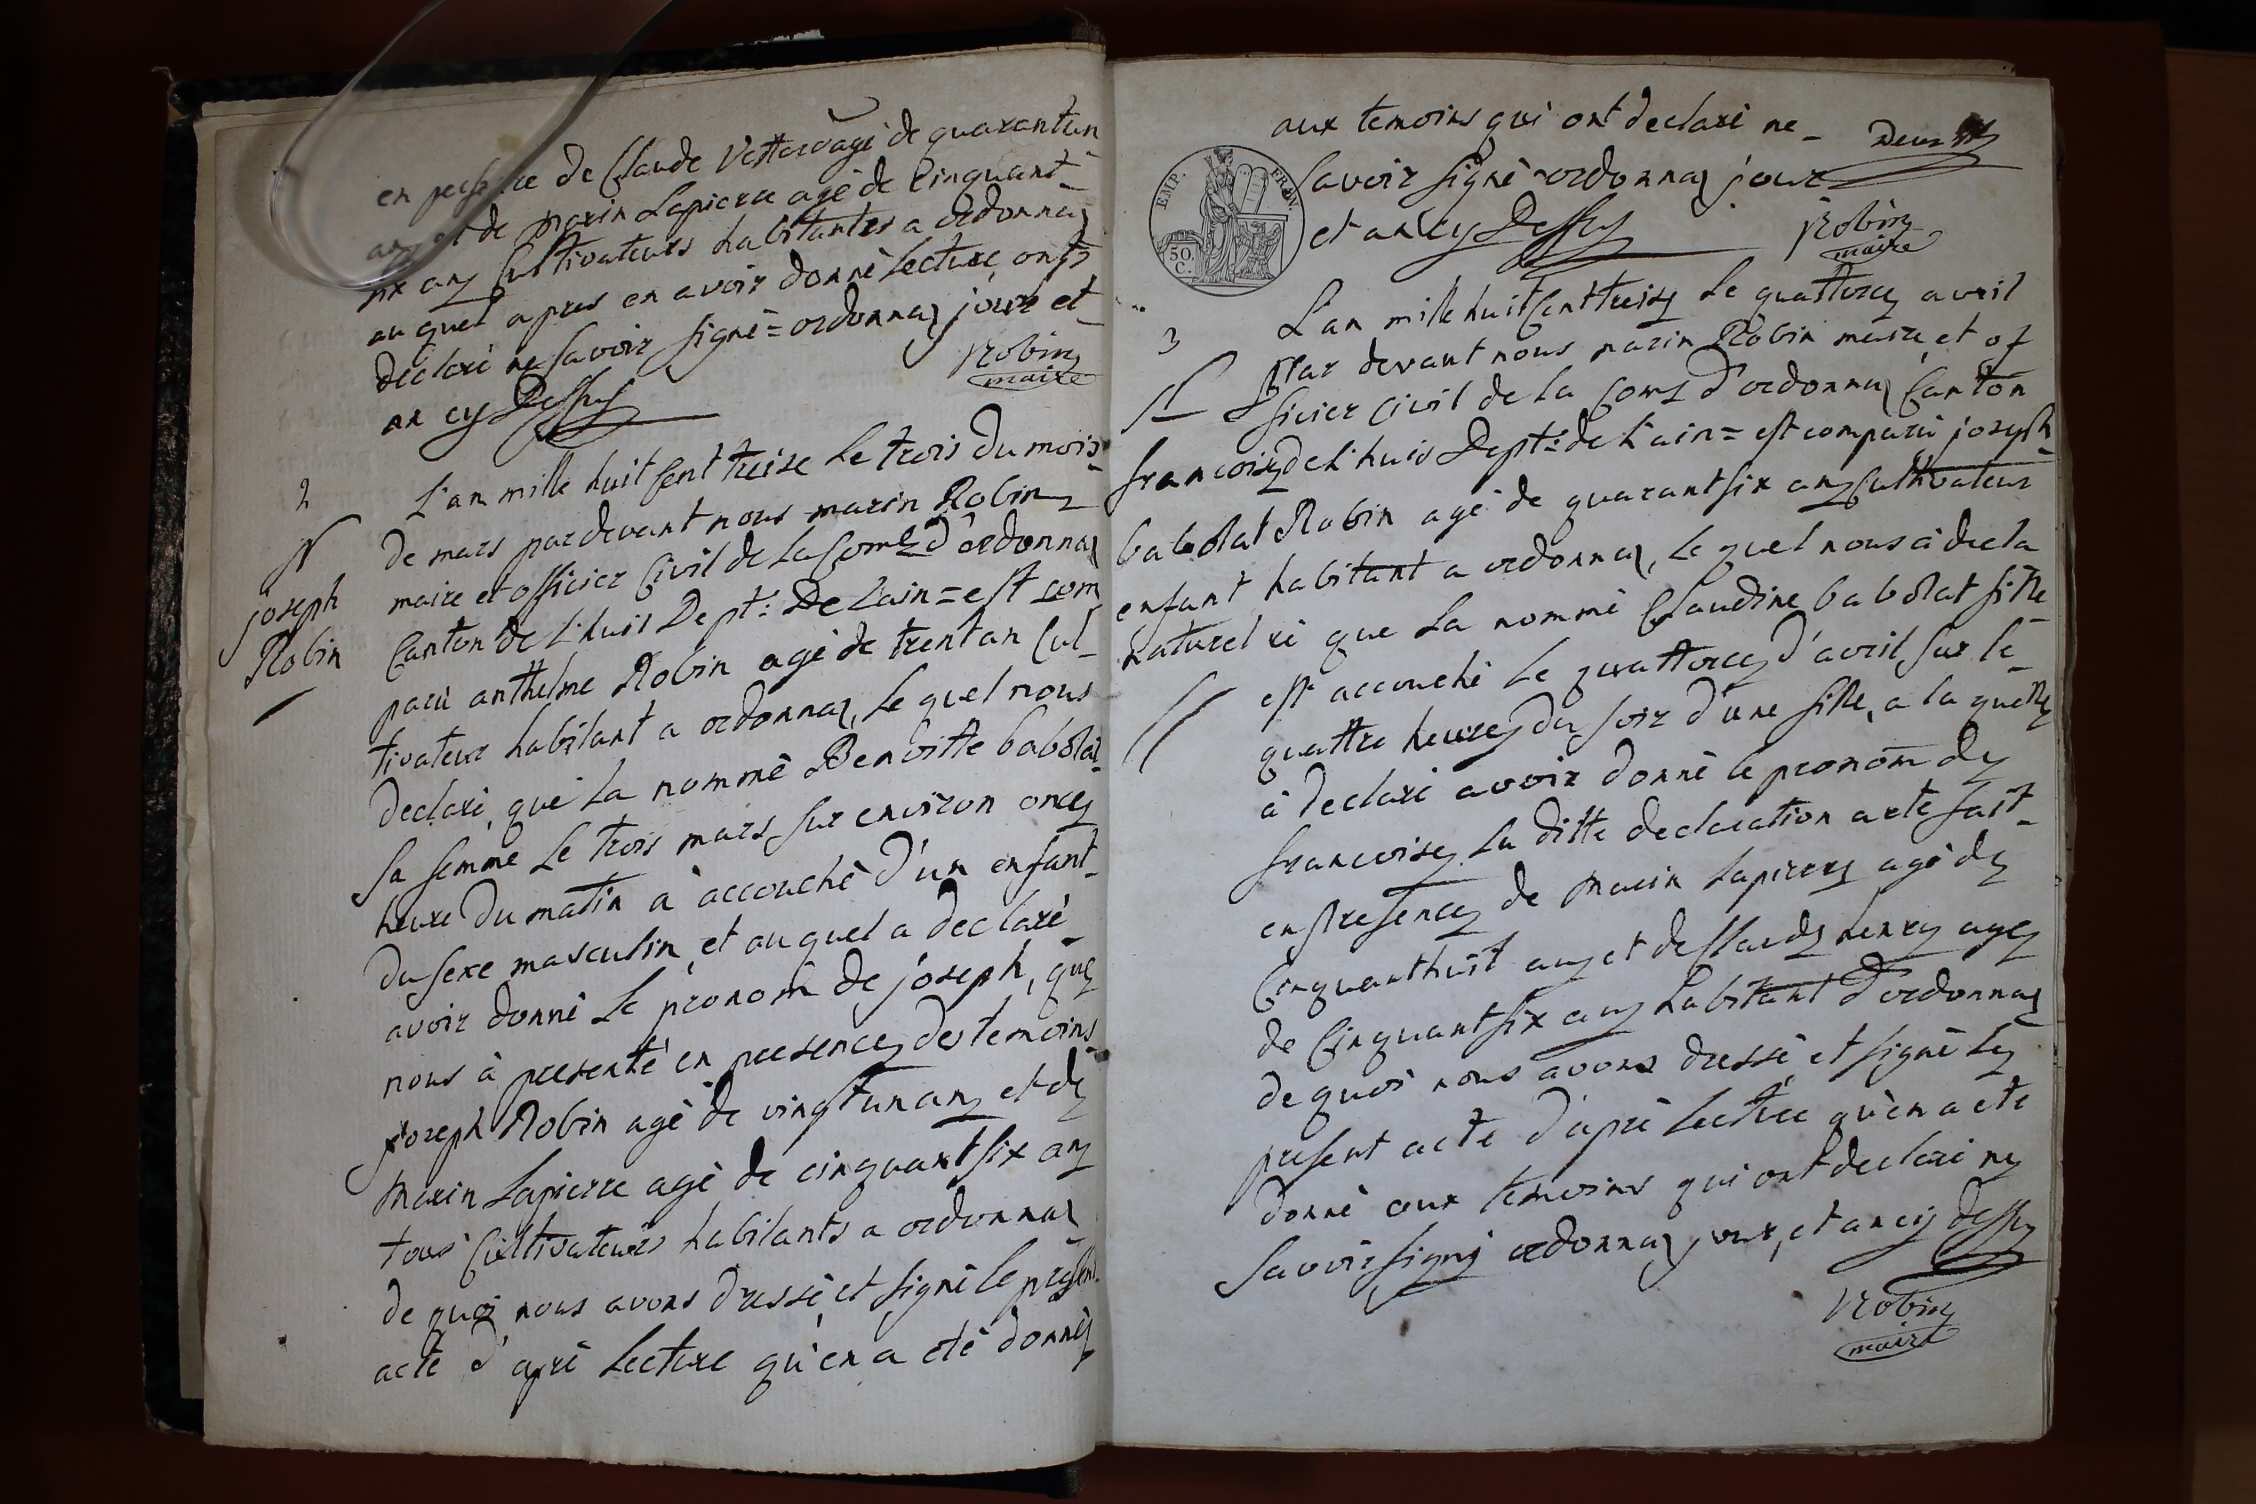 en presence de Claude Vettard agé de quarantun
ans et de marin Lapierre agé de Cinquant
six ans Cultivateurs habitantes a ordonnas
au quel apres en avoir donné Lecture, onts
déclaré ne savoir signé = ordonnas jour et
an cy Dessus
Robin
maire
2
N
joseph
Robin
L'an mille huit sent treize Le trois du mois
de mars par devant nous marin Robin
maire et officier Civil de La Come d'ordonnas
Canton de L'huis Dept: De Lain = est com
paru anthelme Robin agé de trentan Cul
tivateur habitant a ordonnas, Le quel nous
declaré, que La nommé Benoitte babolat
sa femme Le trois mars sur environ onze
heure Du matin à accouché d'un enfant
du sexe masculin, et au quel a declaré
avoir donné Le pronom de joseph, que
nous à presenté en presence des temoins
joseph Robin agé de vingtunans et de
marin Lapierre agé de cinquant six ans
tous Cultivateurs habitants a ordonnas
de quoi nous avons dressé et signé le present
acte d'apré Lecture qu'en a eté donnés
aux temoins qui ont declaré ne
savoir signé ordonnas jour
et an cy Dessus
Deux
Robin
maire
EMP. FRANÇ.
50.
C.
3
N
francoise
babolat
enfant
naturel
L'an mille huit Cent treize Le quattorze avril
Par devant nous marin Robin maire et of
ficier Civil de La Come d'ordonnas Canton
de L'huis Dept: de L'ain = est comparu joseph
Robin agé de quarantsix ans Cultivateur
habitant a ordonnas, Le quel nous à decla
ré que La nommé Claudine babolat fille
est accouché Le quattorze d'avril, sur le
quattre heures du soir d'une fille, a la quelle
à declaré avoir donné le pronom de
francoise, La ditte declaration a ete fait
en presence de marin Lapierre agé de
Cinquanthuit ans et de Claude henry agé
de Cinquantsix ans habitant D'ordonnas
de quoi nous avons dressé et signé Le
present acte d'apré Lecture qu'en a ete
donné aux temoins qui ont declaré ne
savoir signé ordonnas jour, et an cy dessus
Robin
maire